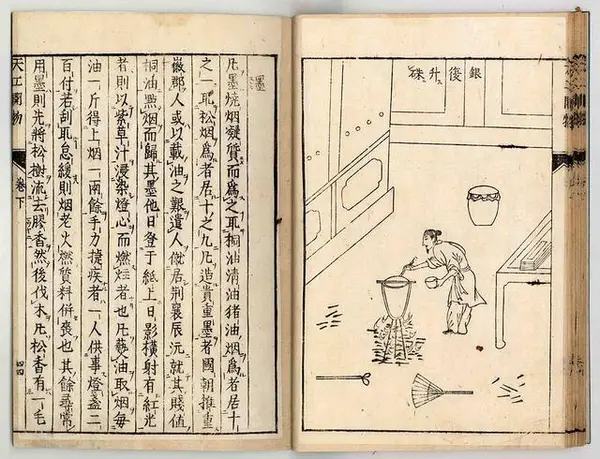 銀復升硃
墨
凡墨燒烟凝質而爲之取桐油清油猪油烟爲者居十
之一取松烟爲者居十之九凡造貴重墨者國朝推重
徽郡人或以載油之艱遣人僦居荆襄辰沅就其賤值
桐油點烟而歸其墨他日登于紙上日影橫射有紅光
者則以紫草汁浸染燈心而燃炷者也凡爇油取烟每
油一斤得上烟一兩餘手力捷疾者一人供事燈盞二
百付若刮取怠緩則烟老火燃質料併喪也其餘尋常
用墨則先將松樹流去膠香然後伐木凡松香有一毛
天工開物 卷下 四四